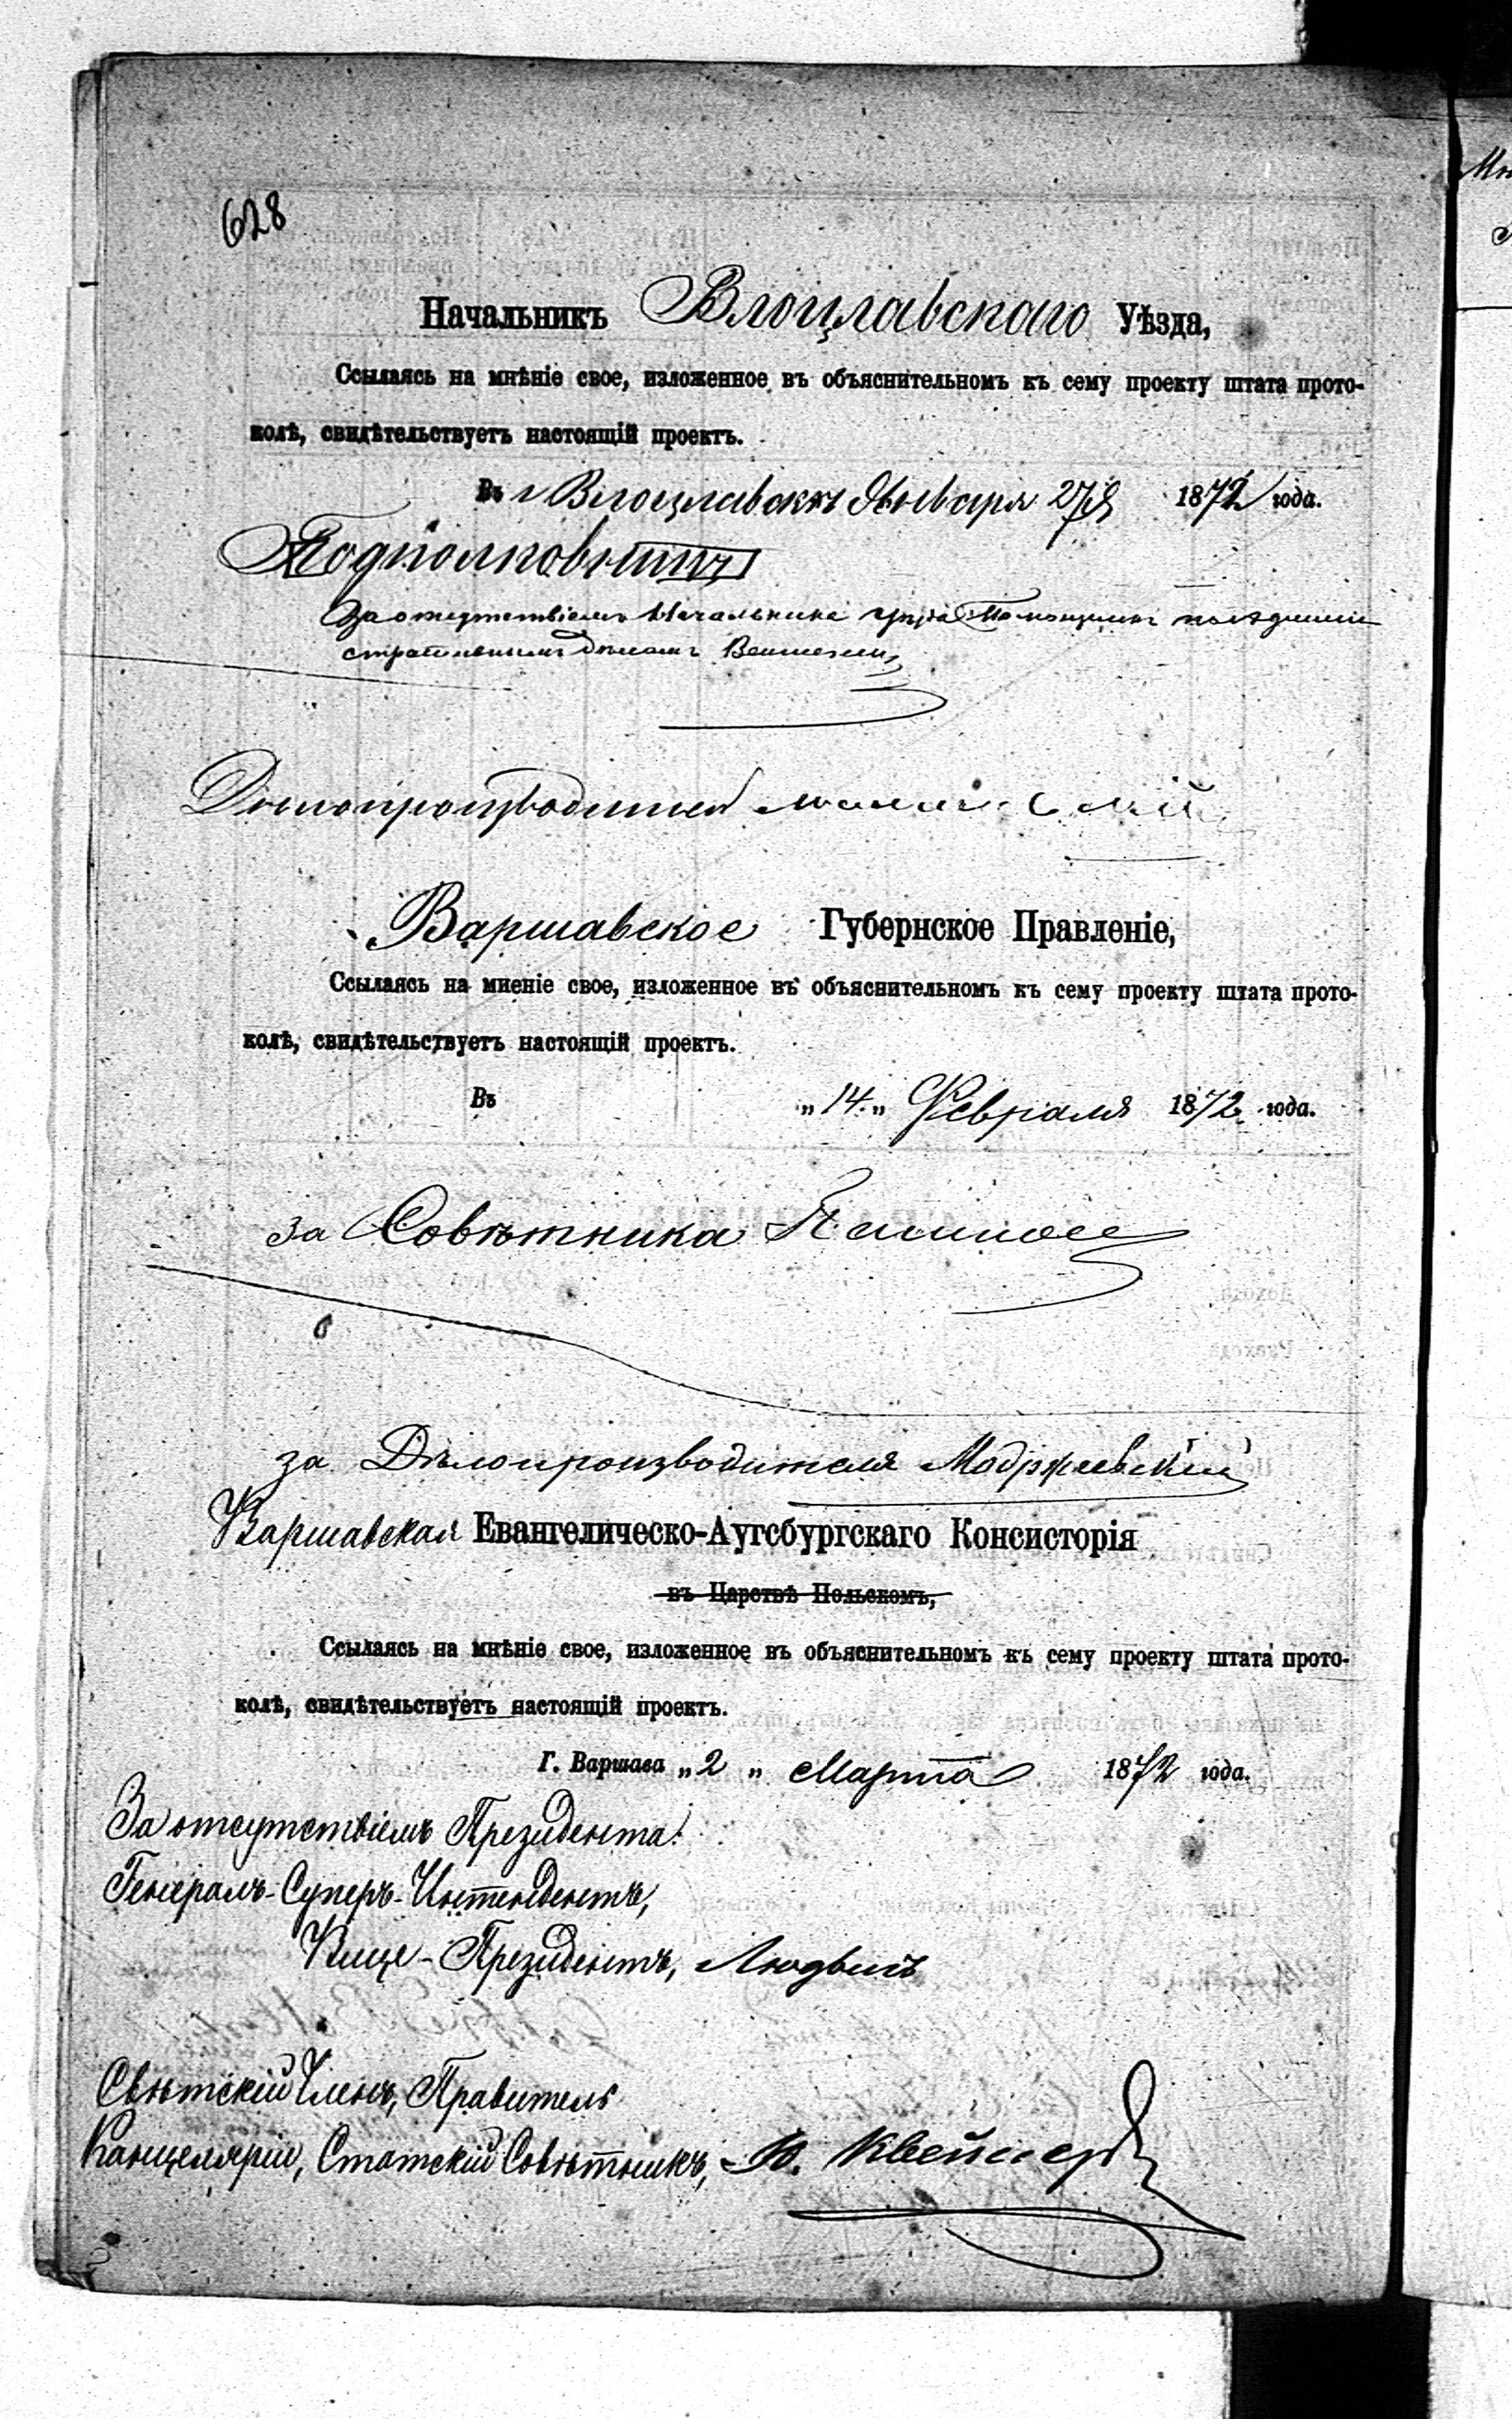 628
Начальникъ Влоцлавскаго Уѣзда,
Ссылаясь на мнѣніе свое, изложенное въ объяснительномъ къ сему проекту штата прото-
колѣ, свидѣтельствуетъ настоящій проектъ.
Въ г Влоцлавскѣ Января 27 1872 года.
Подполковникъ
За отсутствіемъ Начальника уѣзда Помощникъ
Дѣлопроизводитель
Варшавское Губернское Правленіе,
Ссылаясь на мненіе свое, изложенное въ объяснительномъ къ сему проекту штата прото-
колѣ, свидѣтельствуетъ настоящій проектъ.
Въ „ 14 „ Февраля 1872 года.
За Совѣтника
за Дѣлопроизводителя Модржеевскій
Варшавская Евангелическо-Аугсбургскаго Консисторія
въ Царствѣ Польскомъ,
Ссылаясь на мнѣніе свое, изложенное въ объяснительномъ къ сему проекту штата прото-
колѣ, свидѣтельствуетъ настоящій проектъ.
Г. Варшава „ 2 „ Марта 1872 года.
За отсутствіемъ Президента:
Генералъ-Суперъ-Интендентъ,
Вице-Президентъ, Людвигъ
Свѣтскій Членъ, Правитель
Канцеляріи, Статскій Совѣтникъ,